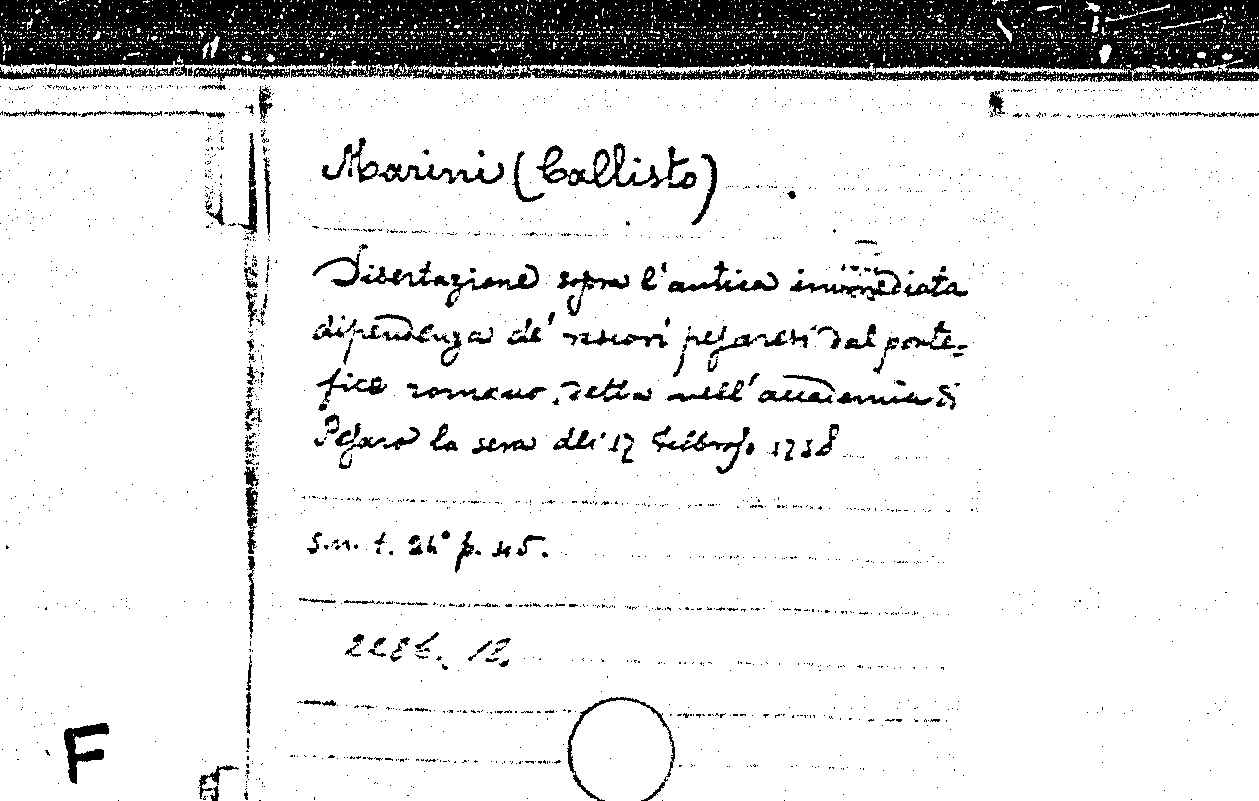 Marini (Callisto)
Disertazione sopra l'antica immediata
dipendenza de' vescovi pesaresi dal ponte=
fice romano, detta nell'accademia di
Pesaro la sera dli 17 Febbrajo 1758
s.n. t. 24° p. 45.
2286. 12.
F